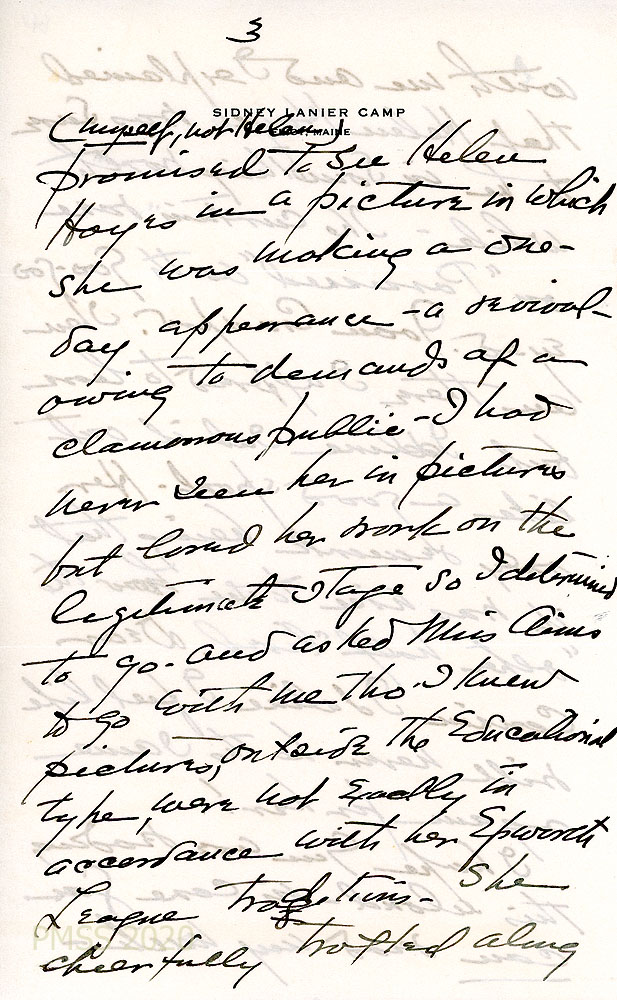 3
SIDNEY LANIER CAMP
MAINE
(myself, not Helen)
promised to see Helen
Hayes in a picture in which
she was making a one-
day appearance - a revival -
owing to demands of a
clamorous public - I had
never seen her in pictures
but loved her work on the
legitimate stage so I determined
to go - and asked Miss Aims
to go with me tho' I knew
pictures, outside the Educational
type, were not exactly in
accordance with her Epworth
League traditions - She
cheerfully trotted along
PMSS 2020